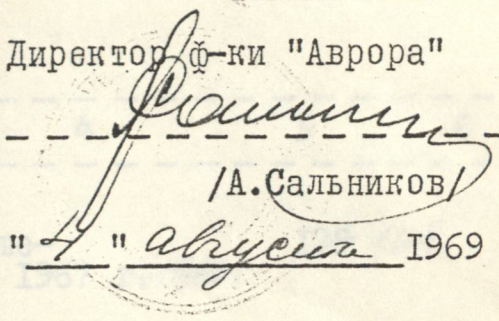 Директор ф-ки "Аврора"
/А.Сальников/
"4" августа 1969